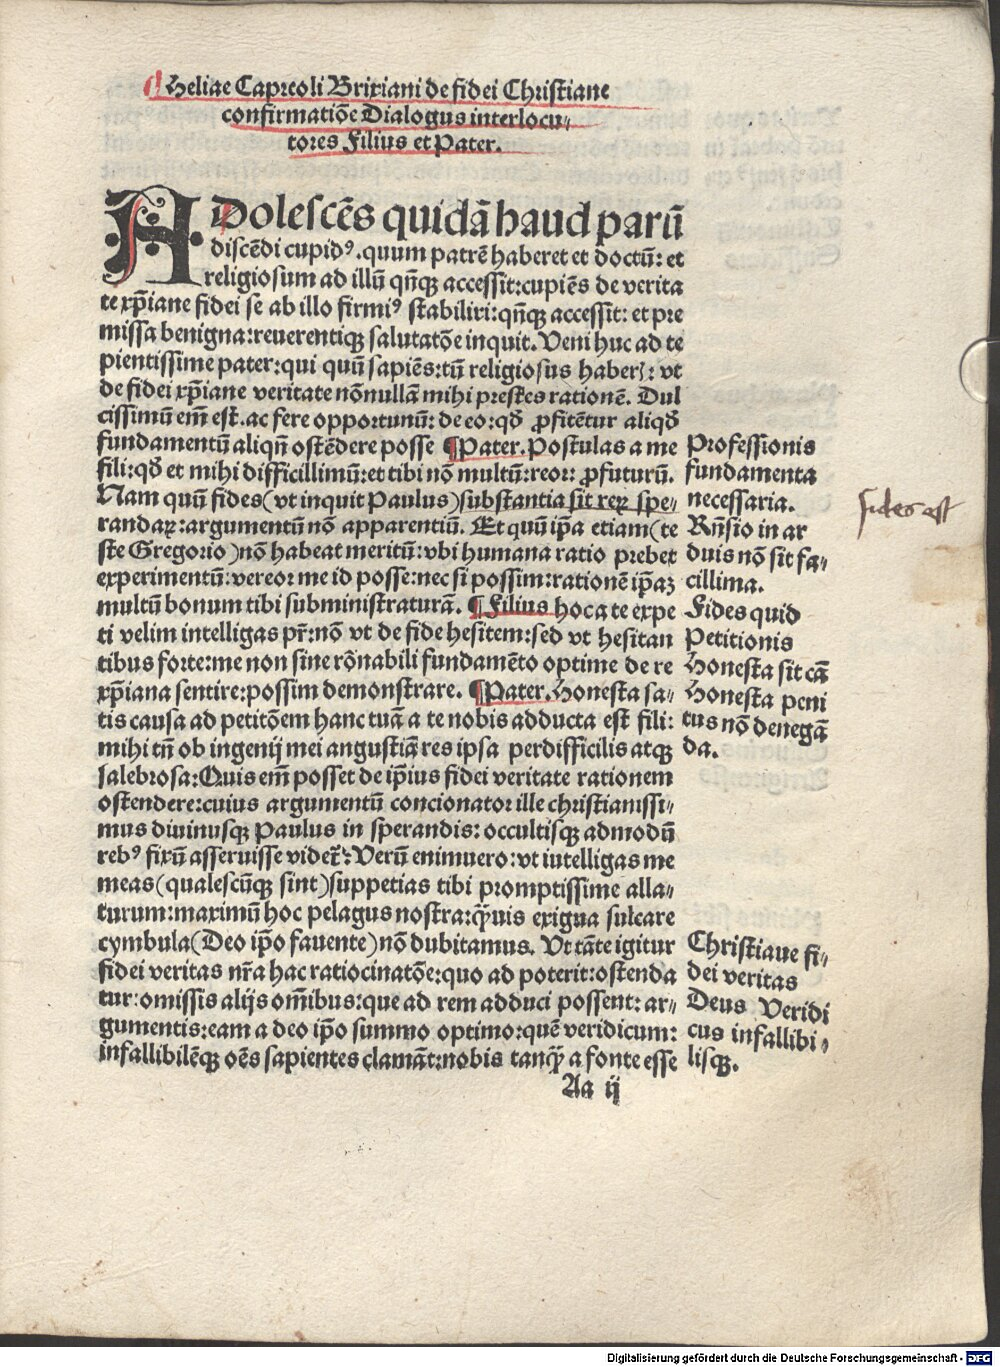 ¶ Heliae Capreoli Brixiani de fidei Christiane
confirmatiõe Dialogus interlocu-
tores Filius et Pater.
ADolescẽs quidã haud parũ
discẽdi cupidꝰ. quum patrẽ haberet et doctũ: et
religiosum ad illũ qñqꝫ accessit: cupiẽs de verita
te xp̃iane fidei se ab illo firmiꝰ stabiliri: qñqꝫ accessit: et pre
missa benigna: reuerentiqꝫ salutatõe inquit. Veni huc ad te
pientissime pater: qui quũ sapiẽs: tũ religiosus haberꝭ: vt
de fidei xp̃iane veritate nõnullã mihi prestes rationẽ. Dul
cissimũ em̃ est. ac fere opportunũ: de eo: qđ ꝓfitẽtur aliqđ
fundamentũ aliqñ ostẽdere posse ¶ Pater. Postulas a me
fili: qđ et mihi difficillimũ: et tibi nõ multũ: reor: ꝓfuturũ.
Nam quũ fides (vt inquit Paulus) substantia sit reꝝ spe-
randaꝝ: argumentũ nõ apparentiũ. Et quũ ip̃a etiam (te
ste Gregorio) nõ habeat meritũ: vbi humana ratio prebet
experimentũ: vereor me id posse: nec si possim: rationẽ ip̃aꝫ
multũ bonum tibi subministraturã. ¶ Filius hoc a te expe
ti velim intelligas pr̃: nõ vt de fide hesitem: sed vt hesitan
tibus forte: me non sine rõnabili fundamẽto optime de re
xp̃iana sentire: possim demonstrare. ¶ Pater. Honesta sa-
tis causa ad petitõem hanc tuã a te nobis adducta est fili:
mihi tñ ob ingenij mei angustiã res ipsa perdifficilis atqꝫ
salebrosa: Quis em̃ posset de ip̃ius fidei veritate rationem
ostendere: cuius argumentũ concionator ille christianissi-
mus diuinusqꝫ Paulus in sperandis: occultisqꝫ admodũ
rebꝰ fixũ asseruisse videt᷑: Verũ enimuero: vt iutelligas me
meas (qualescũqꝫ sint) suppetias tibi promptissime alla-
turum: maximũ hoc pelagus nostra: q̃uis exigua sulcare
cymbula (Deo ip̃o fauente) nõ dubitamus. Vt tãte igitur
fidei veritas nr̃a hac ratiocinatõe: quo ad poterit: ostenda
tur: omissis alijs om̃ibus: que ad rem adduci possent: ar-
gumentis: eam a deo ip̃o summo optimo: quẽ veridicum:
infallibilẽqꝫ oẽs sapientes clamãt: nobis tanq̃ a fonte esse
Aa ij
Professionis
fundamenta
necessaria.
Rñsio in ar
duis nõ sit fa-
cillima.
Fides quid
Petitionis
Honesta sit cã
Honesta peni
tus nõ denegã
da.
Christiaue fi-
dei veritas
Deus Veridi
cus infallibi-
lisqꝫ.
fides est
Digitalisierung gefördert durch die Deutsche Forschungsgemeinschaft - DFG